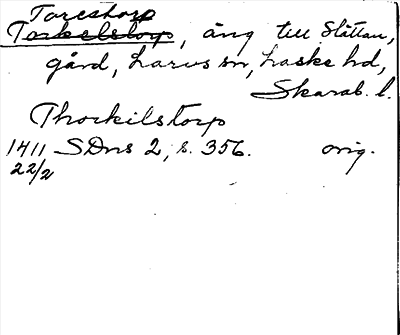 Torestorp
Torkelstorp, äng till Slättan,
gård, Larvs sn, Laske hd,
Skarab. l.
Thorkilstorp
1411 SDns 2, s. 356. orig.
22/2